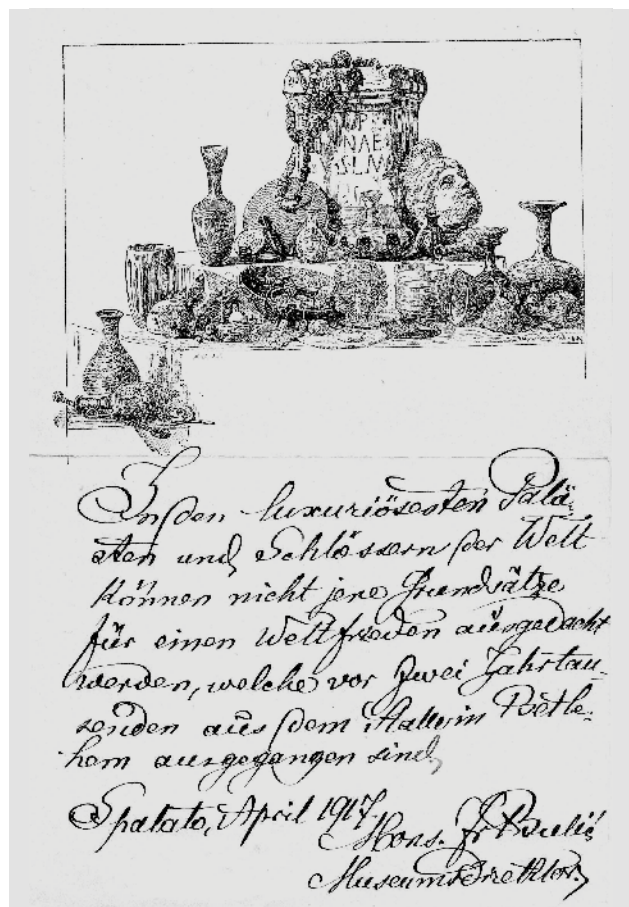 NAE
In den luxuriösesten Palä-
sten und Schlössern der Welt
können nicht jene Grundsätze
für einen Weltfrieden ausgedacht
werden, welche vor zwei Jahrtau-
senden aus dem Stalle in Betle-
hem ausgegangen sind.
Spalato, April 1917.
Mons. Fr. Bulić
Museumsdirektor.